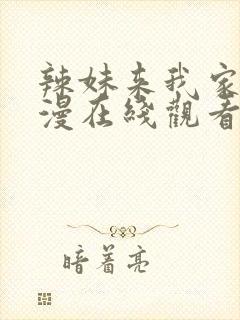 辣妹来我家
漫在綫觀看
暗着亮